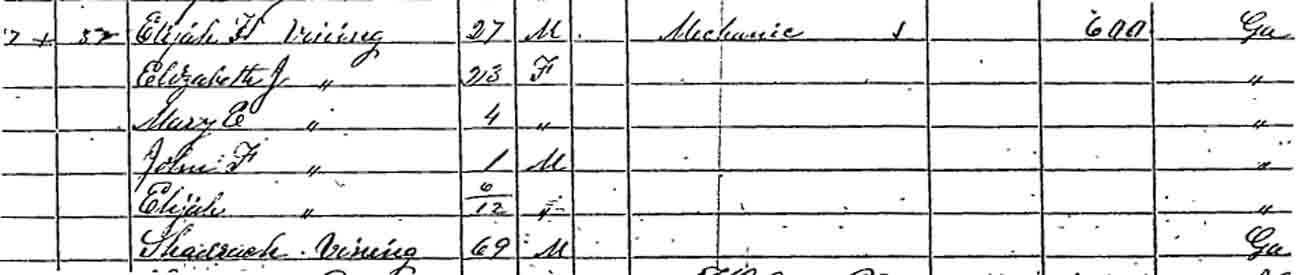 52 Elijah H Vining 27 M. Mechanic 1 600 Ga
Elizabeth J " 23 F "
Mary E " 4 " "
John F " 1 M "
Elijah " 6/12 " "
Shadrach Vining 69 M Ga